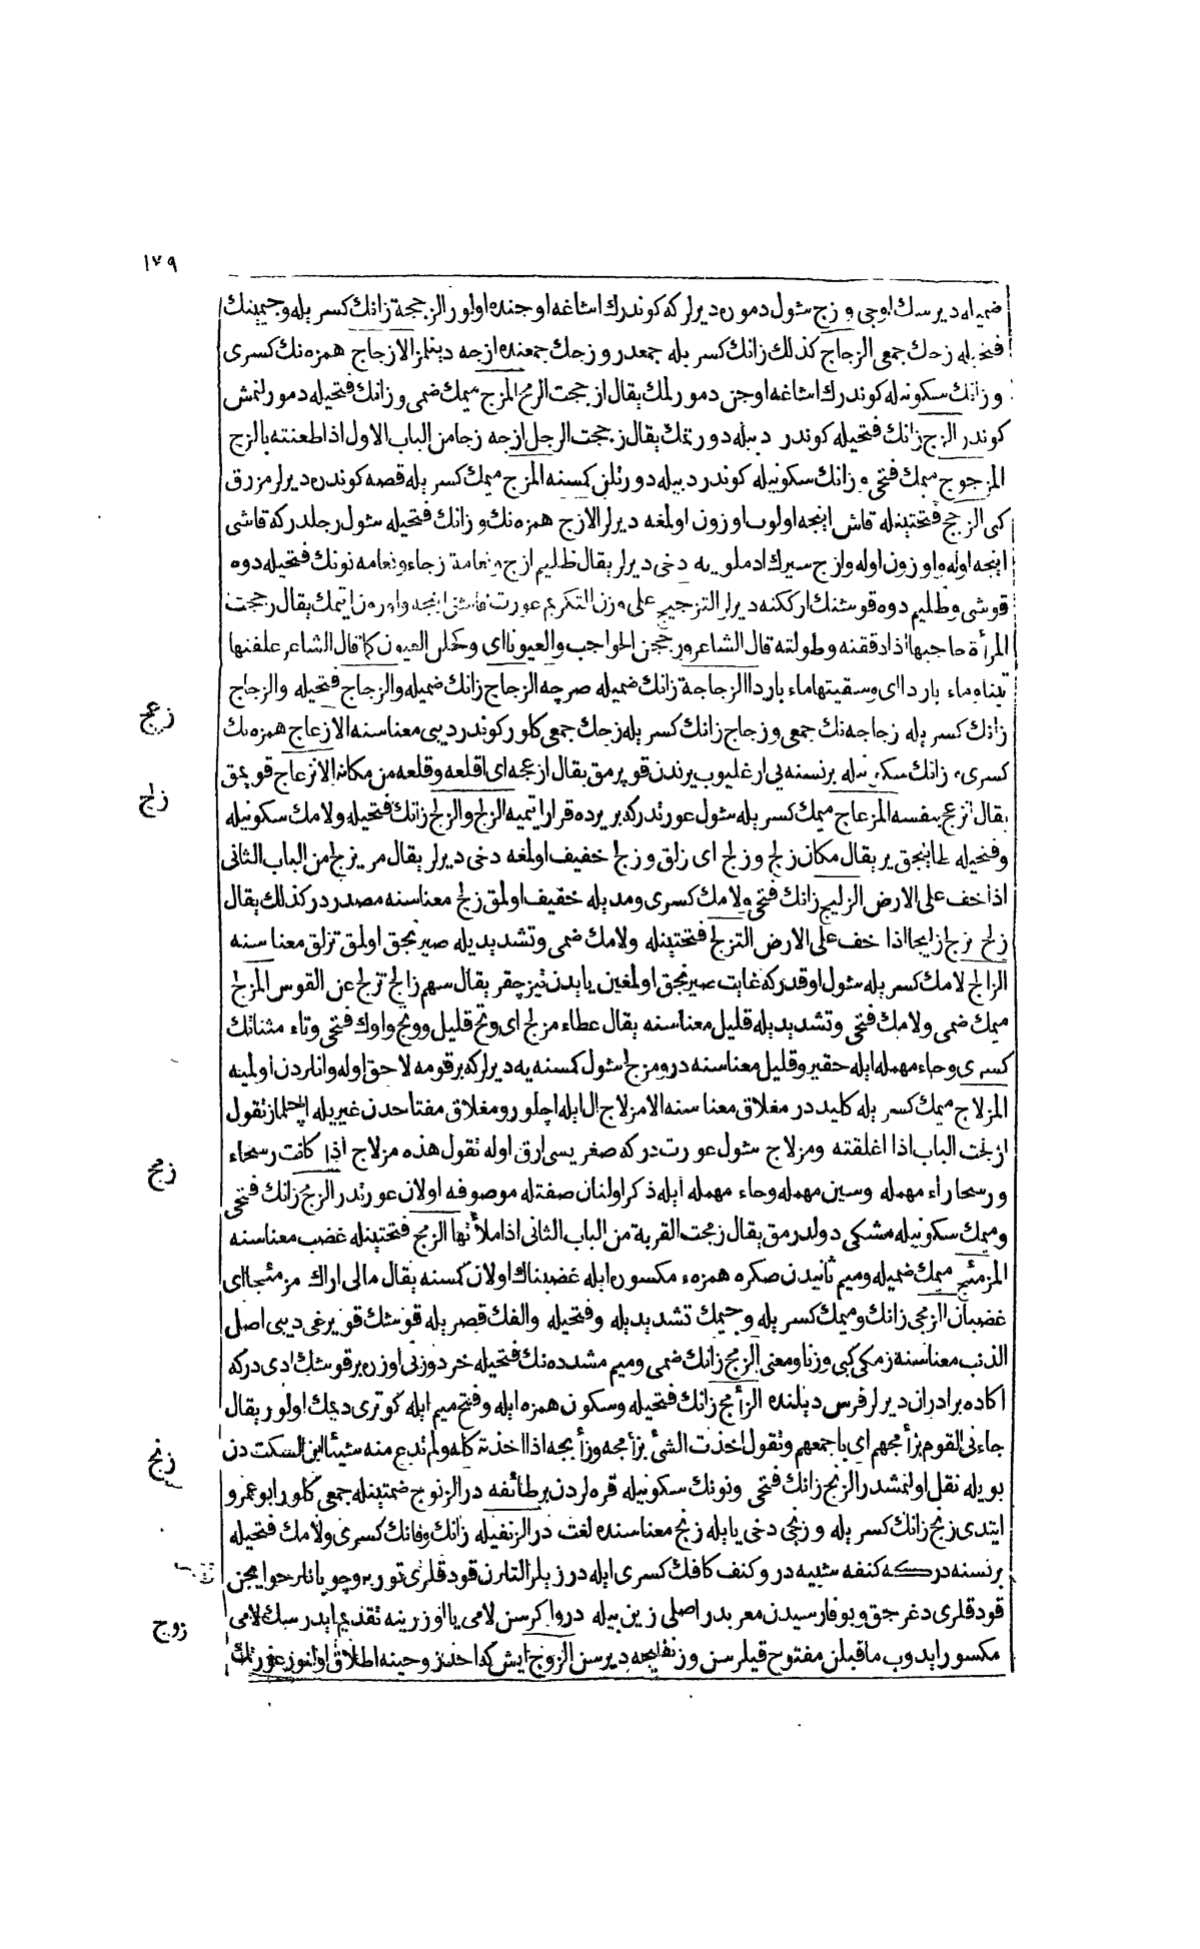 ١٧٩
ضميله ديرسك اوجى و زج شول دموره ديرلر كه كوندرك اشاغه اوجنده اولور الزججة زانك كسر يله و جيمينك
فتحيله زجك جمعى الزجاج كذلك زانك كسر يله جمعدر و زجك جمعنده ازجه دينلمز الازجاج همزه نك كسرى
و زانك سكونيله كوندرك اشاغه اوجن دمورلمك يقال ازججت الرمح المزج ميمك ضمى و زانك فتحيله دمورلنمش
كوندر الزج زانك فتحيله كوندر دبيله دورتمك يقال زججت الرجل ازجه زجا من الباب الاول اذا طعنته بالزج
المزجوج ميمك فتحى و زانك سكونيله كوندر دبيله دورتلن كسنه المزج ميمك كسر يله قصه كوندره ديرلر مزرق
كبى الزجج فتحتينله قاش اينجه اولوب اوزون اولمغه ديرلر الازج همزه نك و زانك فتحيله شول رجلدر كه قاشى
اينجه اوله و اوزون اوله وازج سيرك ادملويه دخى ديرلر يقال ظليم ازج و نعامة زجاء و نعامه نونك فتحيله دوه
قوشى و ظليم دوه قوشنك ارككنه ديرلر التزجيج على وزن التكريم عورت قاشن اينجه و اوزون ايتمك يقال زججت
المرأة حاجبها اذا دققنه و طولته قال الشاعر و زججن الحواجب والعيونا اى و كحلن العيون كما قال الشاعر علفتها
تبنا و ماء باردا اى و سقيتها ماء باردا الزجاجة زانك ضميله صرچه الزجاج زانك ضميله والزجاج فتحيله والزجاج
زانك كسر يله زجاجه نك جمعى و زجاج زانك كسر يله زجك جمعى كلور كوندر ديبى معناسنه الازعاج همزه نك
كسرى و زانك سكونيله برنسنه يى ارغليوب يرندن قوپرمق يقال ازعجه اى اقلعه و قلعه من مكانه الانزعاج قوپمق
يقال انزعج بنفسه المزعاج ميمك كسر يله شول عورتدر كه بر يرده قرار ايتميه الزلج والزلج زانك فتحيله و لامك سكونيله
و فتحيله طاينجق ير يقال مكان زلج و زلج اى زلق و زلج خفيف اولمغه دخى ديرلر يقال مر يزلج من الباب الثانى
اذا خف على الارض الزليج زانك فتحى و لامك كسرى و مد يله خفيف اولمق زلج معناسنه مصدر در كذلك يقال
زلج يزلج زليجا اذا خف على الارض التزلج فتحتينله و لامك ضمى و تشديد يله صيرنجق اولمق تزلق معناسنه
الزالج لامك كسر يله شول اوقدر كه غايت صيرنجق اولمغين يايدن تيز چقر يقال سهم زالج تزلج عن القوس المزلج
ميمك ضمى و لامك فتحى و تشديد يله قليل معناسنه يقال عطاء مزلج اى وتح قليل و وتح واوك فتحى و تاء مثناتك
كسرى و حاء مهمله ايله حقير و قليل معناسنه در و مزلج شول كسنه يه ديرلر كه بر قومه لاحق اوله و انلردن اولميه
المزلاج ميمك كسر يله كليددر مغلاق معناسنه الا مزلاج ال ايله اچلور و مغلاق مفتاحدن غيريله اچلماز تقول
ازلجت الباب اذا اغلقته و مزلاج شول عورت در كه صغريسى ارق اوله تقول هذه مزلاج اذا كانت رسحاء
و رسحا راء مهمله و سين مهمله و حاء مهمله ايله ذكر اولنان صفتله موصوفه اولان عورتدر الزمج زانك فتحى
و ميمك سكونيله مشكى دولدرمق يقال زمجت القربة من الباب الثانى اذا ملأتها الزمج فتحتينله غضب معناسنه
المزمئج ميمك ضميله و ميم ثانيدن صكره همزه مكسوره ايله غضبناك اولان كسنه يقال مالى اراك مزمئجا اى
غضبان الزمجى زانك و ميمك كسر يله و جيمك تشديد يله و فتحيله و الفك قصر يله قوشك قويرغى ديبى اصل
الذنب معناسنه زمكى كبى وزنا و معنى الزمج زانك ضمى و ميم مشدده نك فتحيله خرد وزنى اوزره بر قوشك ادى در كه
اكا ده برادران ديرلر فرس ديلنده الزأمج زانك فتحيله و سكون همزه ايله و فتح ميم ايله كوترى ديمك اولور يقال
جاءنى القوم بزأمجهم اى باجمعهم و تقول اخذت الشئ بزأمجه و زأبجه اذا اخذته كله و لم تدع منه شيئا ابن السكت دن
بويله نقل اولنمشدر الزنج زانك فتحى و نونك سكونيله قره لردن بر طائفه در الزنوج ضمتينله جمعى كلور ابو عمرو
ايتدى زنج زانك كسر يله و زنجى دخى يا يله زنج معناسنده لغت در الزنفيله زانك و فانك كسرى و لامك فتحيله
برنسنه در كه كنفه شبيه در و كنف كافك كسرى ايله در
قود قلرى دغرجق و بو فارسيدن معربدر اصلى زين بيله در و اكر سن لامى يا اوزرينه تقديم ايدرسك لامى
مكسور ايدوب ماقبلن مفتوح قيلرسن و زنفليجه ديرسن الزوج ايش كه احد زوجينه اطلاق اولنور عورتك
زعج
زلج
زمج
زنج
زوج